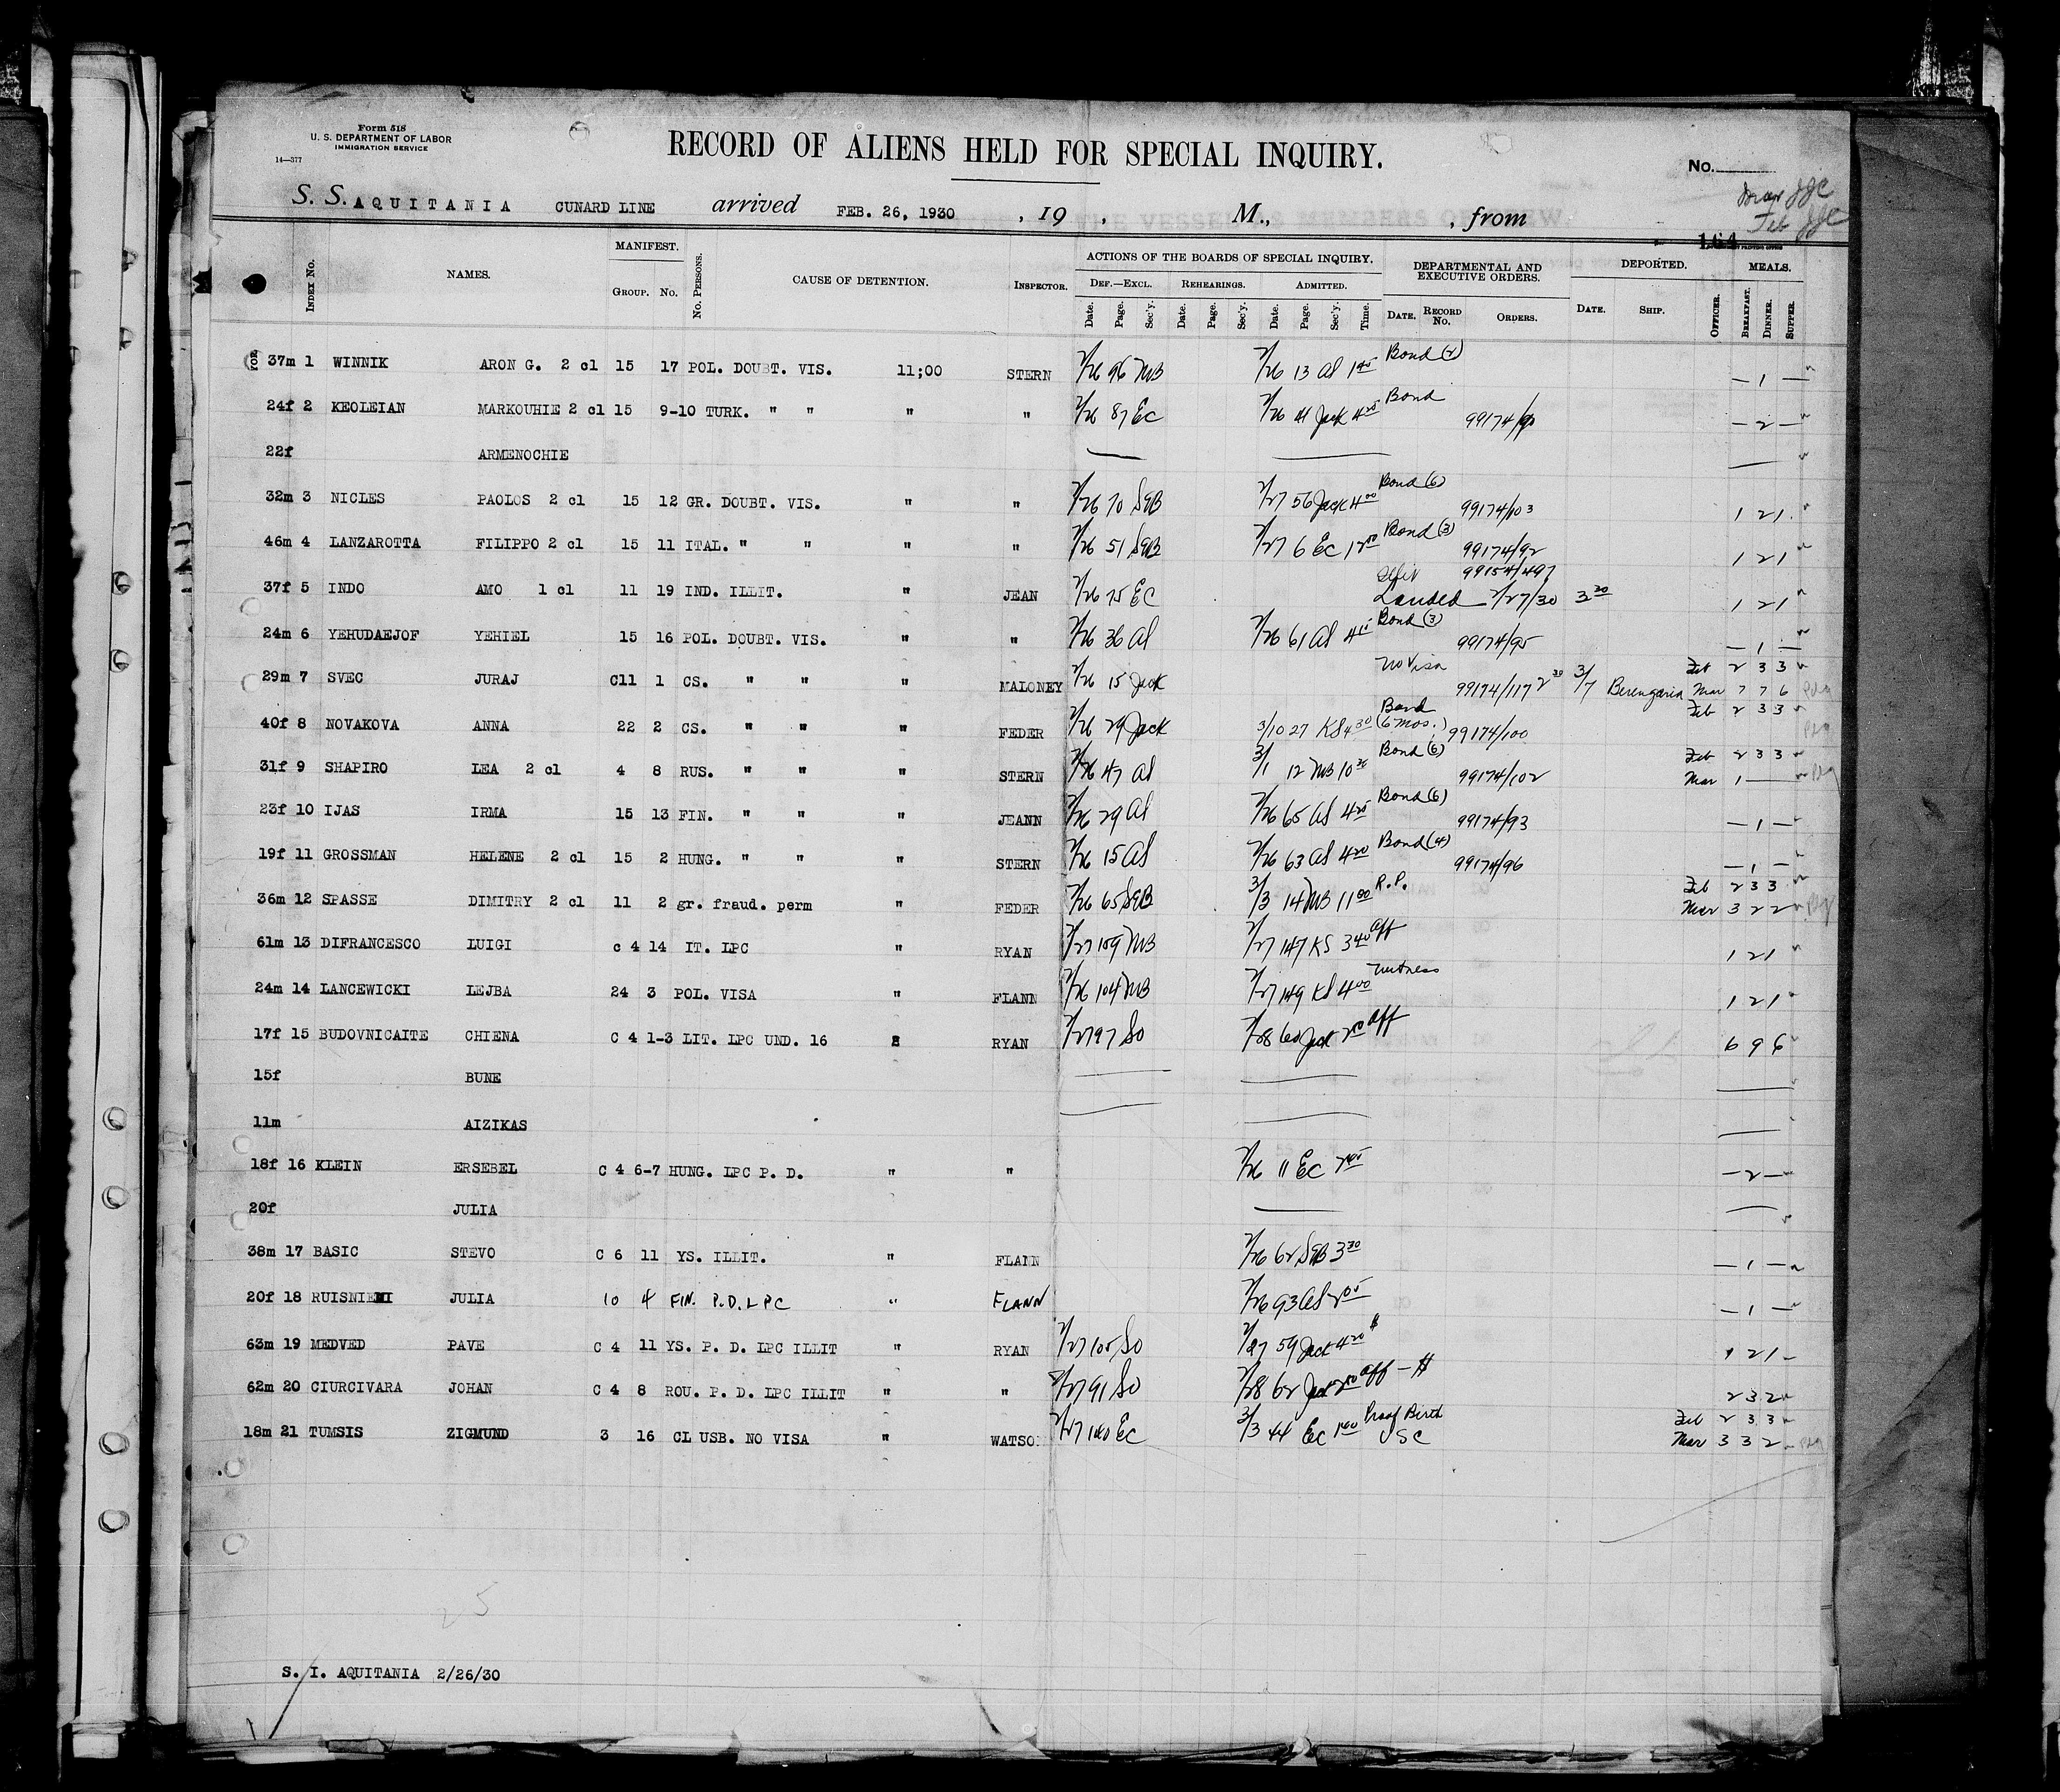 Form 518
U. S. DEPARTMENT OF LABOR
IMMIGRATION SERVICE
14—377
RECORD OF ALIENS HELD FOR SPECIAL INQUIRY.
No.
S. S. AQUITANIA CUNARD LINE arrived FEB. 26, 1930 , 19 , M., , from
Feb
164
INDEX NO. NAMES. MANIFEST. GROUP. NO. NO. PERSONS. CAUSE OF DETENTION. INSPECTOR. ACTIONS OF THE BOARDS OF SPECIAL INQUIRY. DEPARTMENTAL AND EXECUTIVE ORDERS. DEPORTED. MEALS.
DEF.—EXCL. REHEARINGS. ADMITTED.
Date. Page. Sec'y. Date. Page. Sec'y. Date. Page. Sec'y. Time. DATE. RECORD No. ORDERS. DATE. SHIP. OFFICER. BREAKFAST. DINNER. SUPPER.
37m 1 WINNIK ARON G. 2 cl 15 17 POL. DOUBT. VIS. 11;00 STERN 2/26 96 MB 2/26 13 AS 1 45 Bond (2) — 1 —
24f 2 KEOLEIAN MARKOUHIE 2 cl 15 9-10 TURK. " " " " 2/26 87 EC 2/26 41 Jack 4 25 Bond 99174/90 — 2 —
22f ARMENOCHIE
32m 3 NICLES PAOLOS 2 cl 15 12 GR. DOUBT. VIS. " " 2/26 70 SGB 2/27 56 Jack 4 00 Bond (6) 99174/103 1 2 1
46m 4 LANZAROTTA FILIPPO 2 cl 15 11 ITAL. " " " " 2/26 51 SGB 2/27 6 EC 12 00 Bond (3) 99174/92 1 2 1
37f 5 INDO AMO 1 cl 11 19 IND. ILLIT. " JEAN 2/26 75 EC 99154/497 Landed 2/27/30 3 30 1 2 1
24m 6 YEHUDAEJOF YEHIEL 15 16 POL. DOUBT. VIS. " " 2/26 36 AS 2/26 61 AS 4 15 Bond (3) 99174/95 — 1 —
29m 7 SVEC JURAJ C11 1 CS. " " " MALONEY 2/26 15 Jack No Visa 99174/117 2 30 3/7 Berengaria Feb 2 3 3 Mar 7 7 6
40f 8 NOVAKOVA ANNA 22 2 CS. " " " FEDER 2/26 29 Jack 3/10 27 KS 4 30 Bond (6 mos.) 99174/100 Feb 2 3 3
31f 9 SHAPIRO LEA 2 cl 4 8 RUS. " " " STERN 2/26 47 AS 3/1 12 MB 10 30 Bond (6) 99174/102 Feb 2 3 3 Mar 1 —
23f 10 IJAS IRMA 15 13 FIN. " " " JEANN 2/26 29 AS 2/26 65 AS 4 25 Bond (6) 99174/93 — 1 —
19f 11 GROSSMAN HELENE 2 cl 15 2 HUNG. " " " STERN 2/26 15 AS 2/26 63 AS 4 20 Bond (4) 99174/96 — 1 —
36m 12 SPASSE DIMITRY 2 cl 11 2 gr. fraud. perm " FEDER 2/26 65 SGB 3/3 14 MB 11 00 R.P. Feb 2 3 3 Mar 3 2 2
61m 13 DIFRANCESCO LUIGI c 4 14 IT. LPC " RYAN 2/27 109 MB 2/27 147 KS 3 40 Aff 1 2 1
24m 14 LANCEWICKI LEJBA 24 3 POL. VISA " FLANN 2/26 104 MB 2/27 149 KS 4 00 Witness 1 2 1
17f 15 BUDOVNICAITE CHIENA C 4 1-3 LIT. LPC UND. 16 RYAN 2/27 97 SO 2/28 60 Jack Aff 6 9 6
15f BUNE
11m AIZIKAS
18f 16 KLEIN ERSEBEL C 4 6-7 HUNG. LPC P. D. " " 2/26 11 EC 2 45 — 2 —
20f JULIA
38m 17 BASIC STEVO C 6 11 YS. ILLIT. " FLANN 2/26 62 SGB 3 30 — 1 —
20f 18 RUISNIEMI JULIA 10 4 FIN. P.D. LPC " FLANN 2/26 93 AS 2 05 — 1 —
63m 19 MEDVED PAVE C 4 11 YS. P. D. LPC ILLIT " RYAN 2/27 105 SO 2/27 59 Jack 4 20 $ 1 2 1
62m 20 CIURCIVARA JOHAN C 4 8 ROU. P. D. LPC ILLIT " " 2/27 91 SO 2/28 62 Jack Aff — $ 2 3 2
18m 21 TUMSIS ZIGMUND 3 16 CL USB. NO VISA " WATSO 2/27 140 EC 3/3 44 EC 1 00 Proof Birth USC Feb 2 3 3 Mar 3 3 2
25
S. I. AQUITANIA 2/26/30